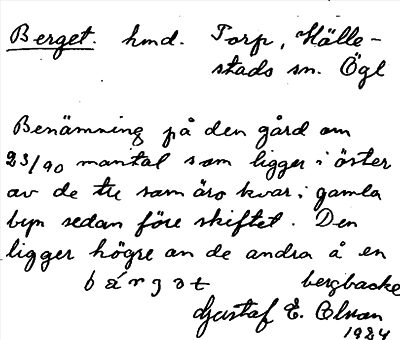 Berget. hmd. Torp, Hälle-
stads sn. Ögl
Benämning på den gård om
23/90 mantal som ligger i öster
av de tre som äro kvar i gamla
byn sedan före skiftet. Den
ligger högre än de andra å en
bergbacke
Gustaf E.
1924